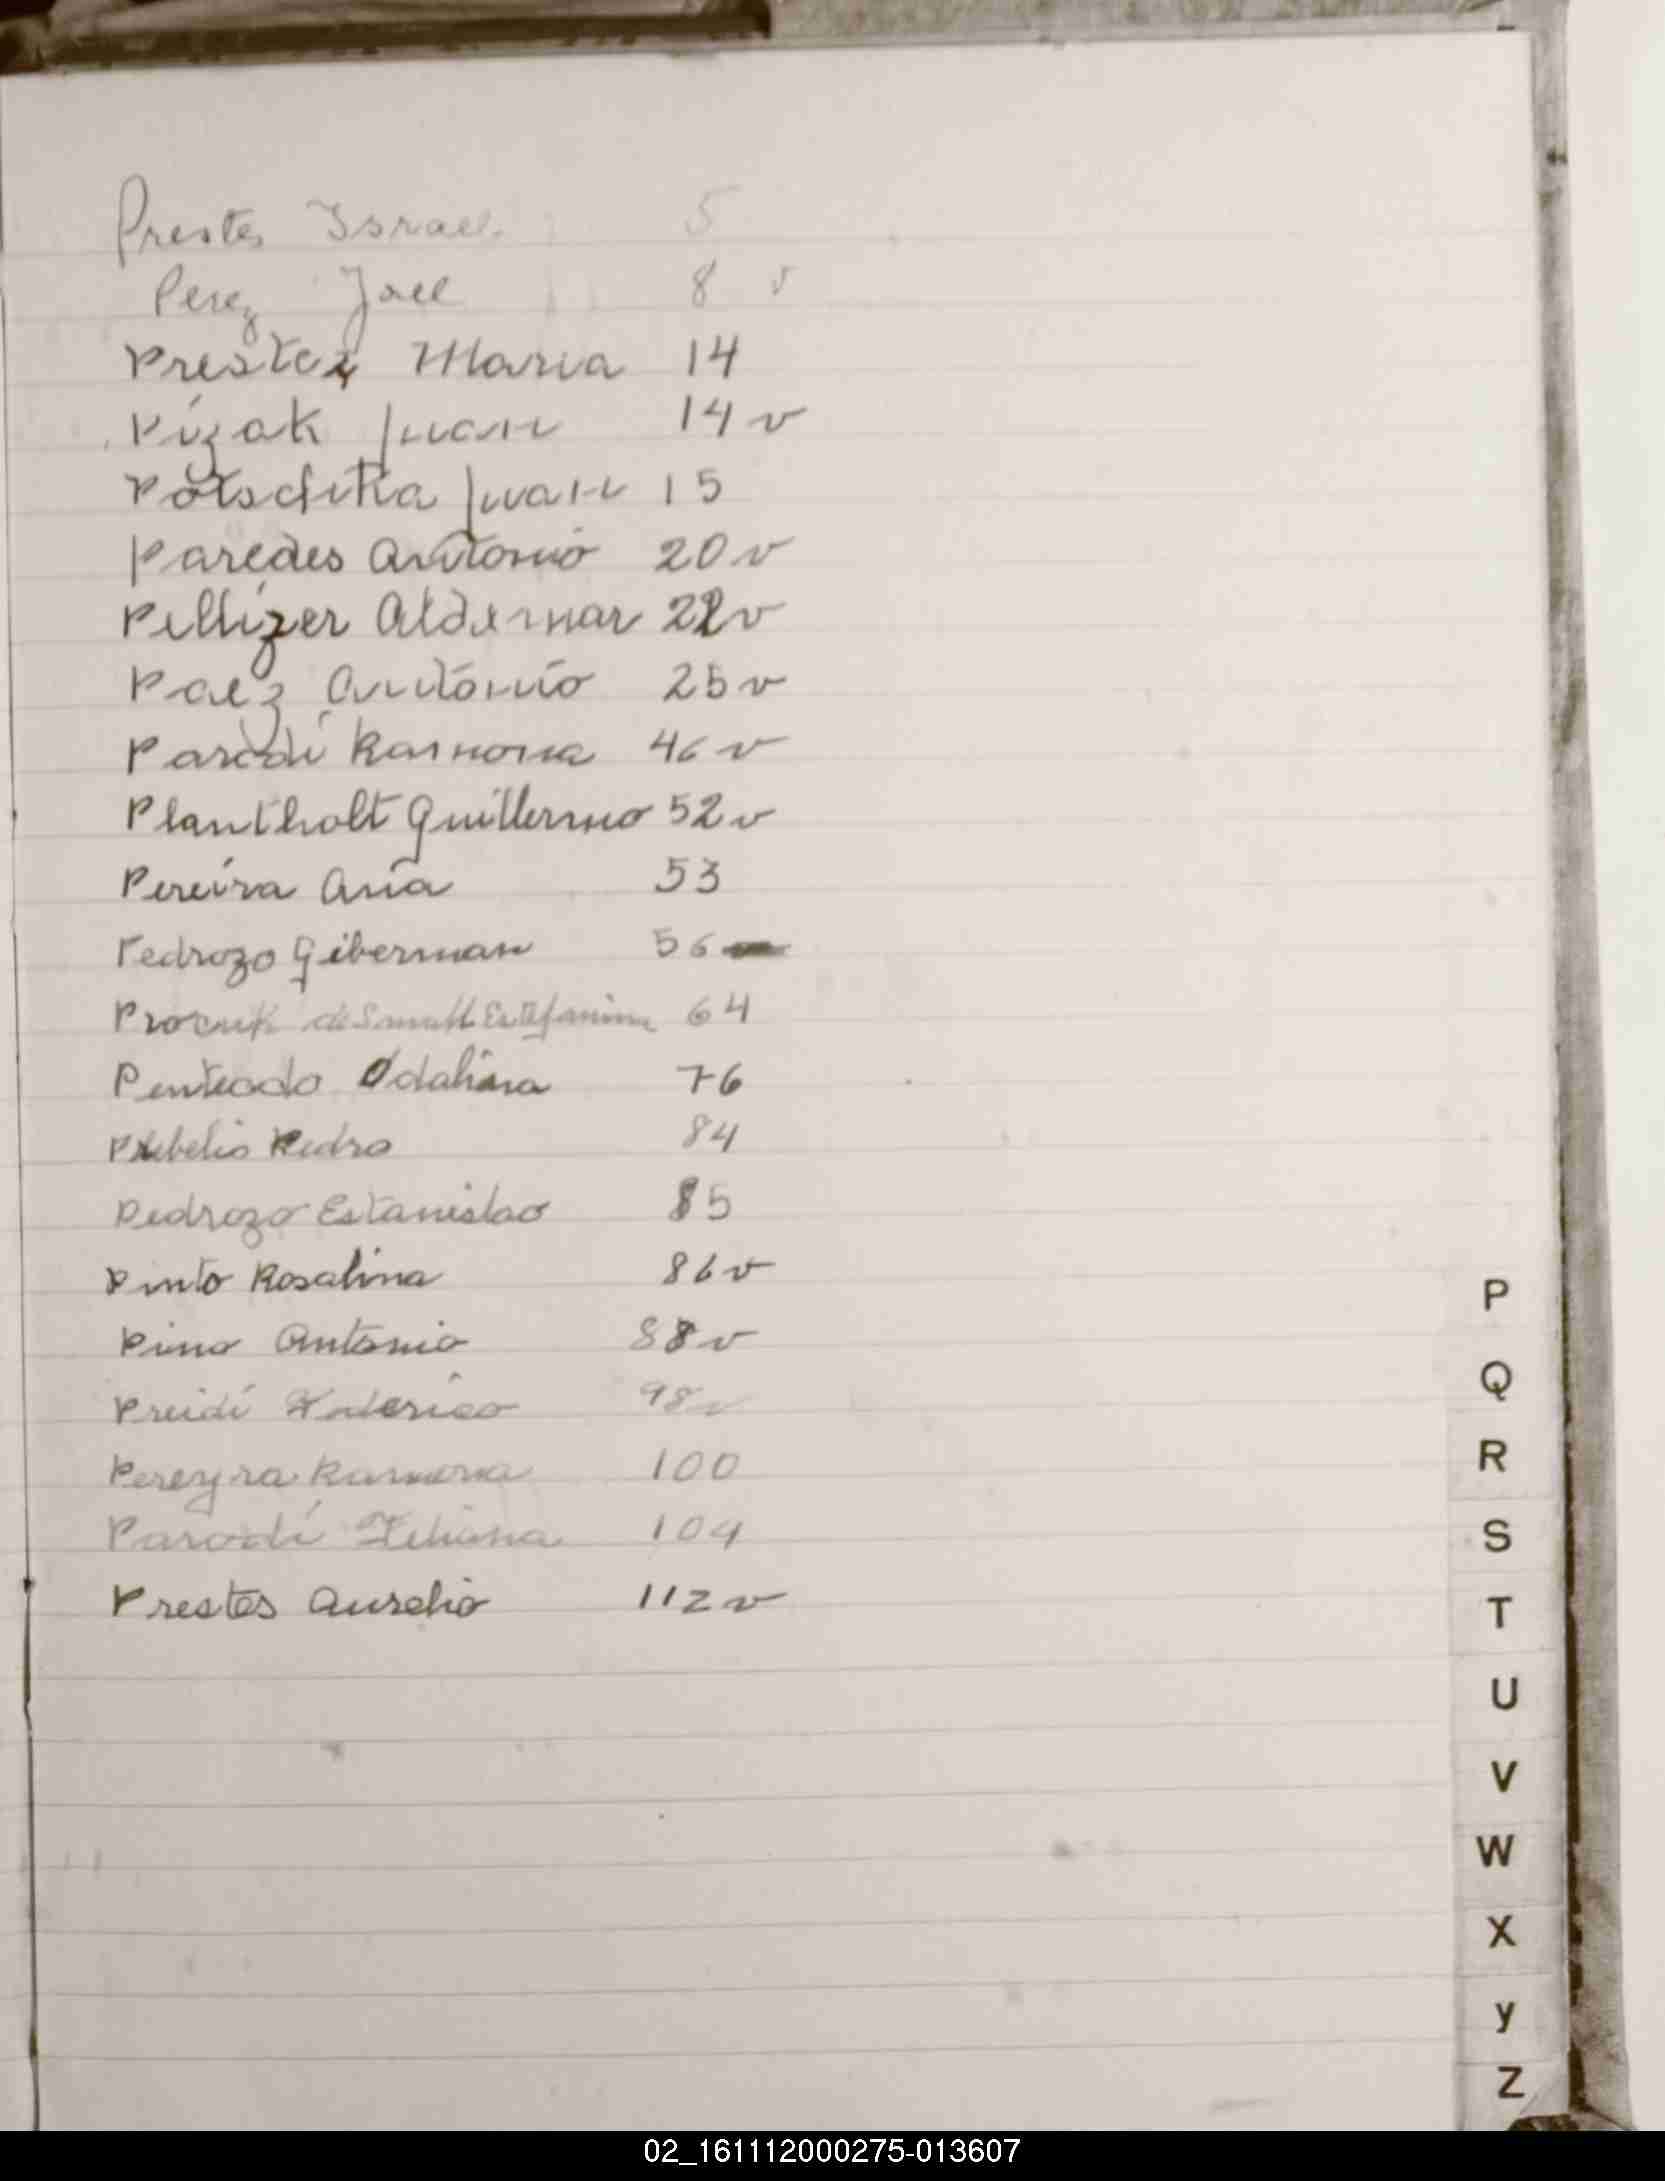 Prestes Israel 5
Perez Joel 8 v
Prestez Maria 14
Pizak Juan 14 v
Potschka Juan 15
Paredes Antonio 20 v
Pellizer Aldemar 22 v
Paez Antonio 25 v
Parodi Ramona 46 v
Plantholt Guillermo 52 v
Pereira Ana 53
Pedrozo Giberman 56
de Small Estefanina 64
Penteado Odalina 76
Pedro 84
Pedrozo Estanislao 85
Pinto Rosalina 86 v
Pino Antonio 88 v
Preidi Federico 98 v
Pereyra Ramona 100
Parodi 104
Prestes Aurelio 112 v
P
Q
R
S
T
U
V
W
X
y
Z
02_161112000275-013607